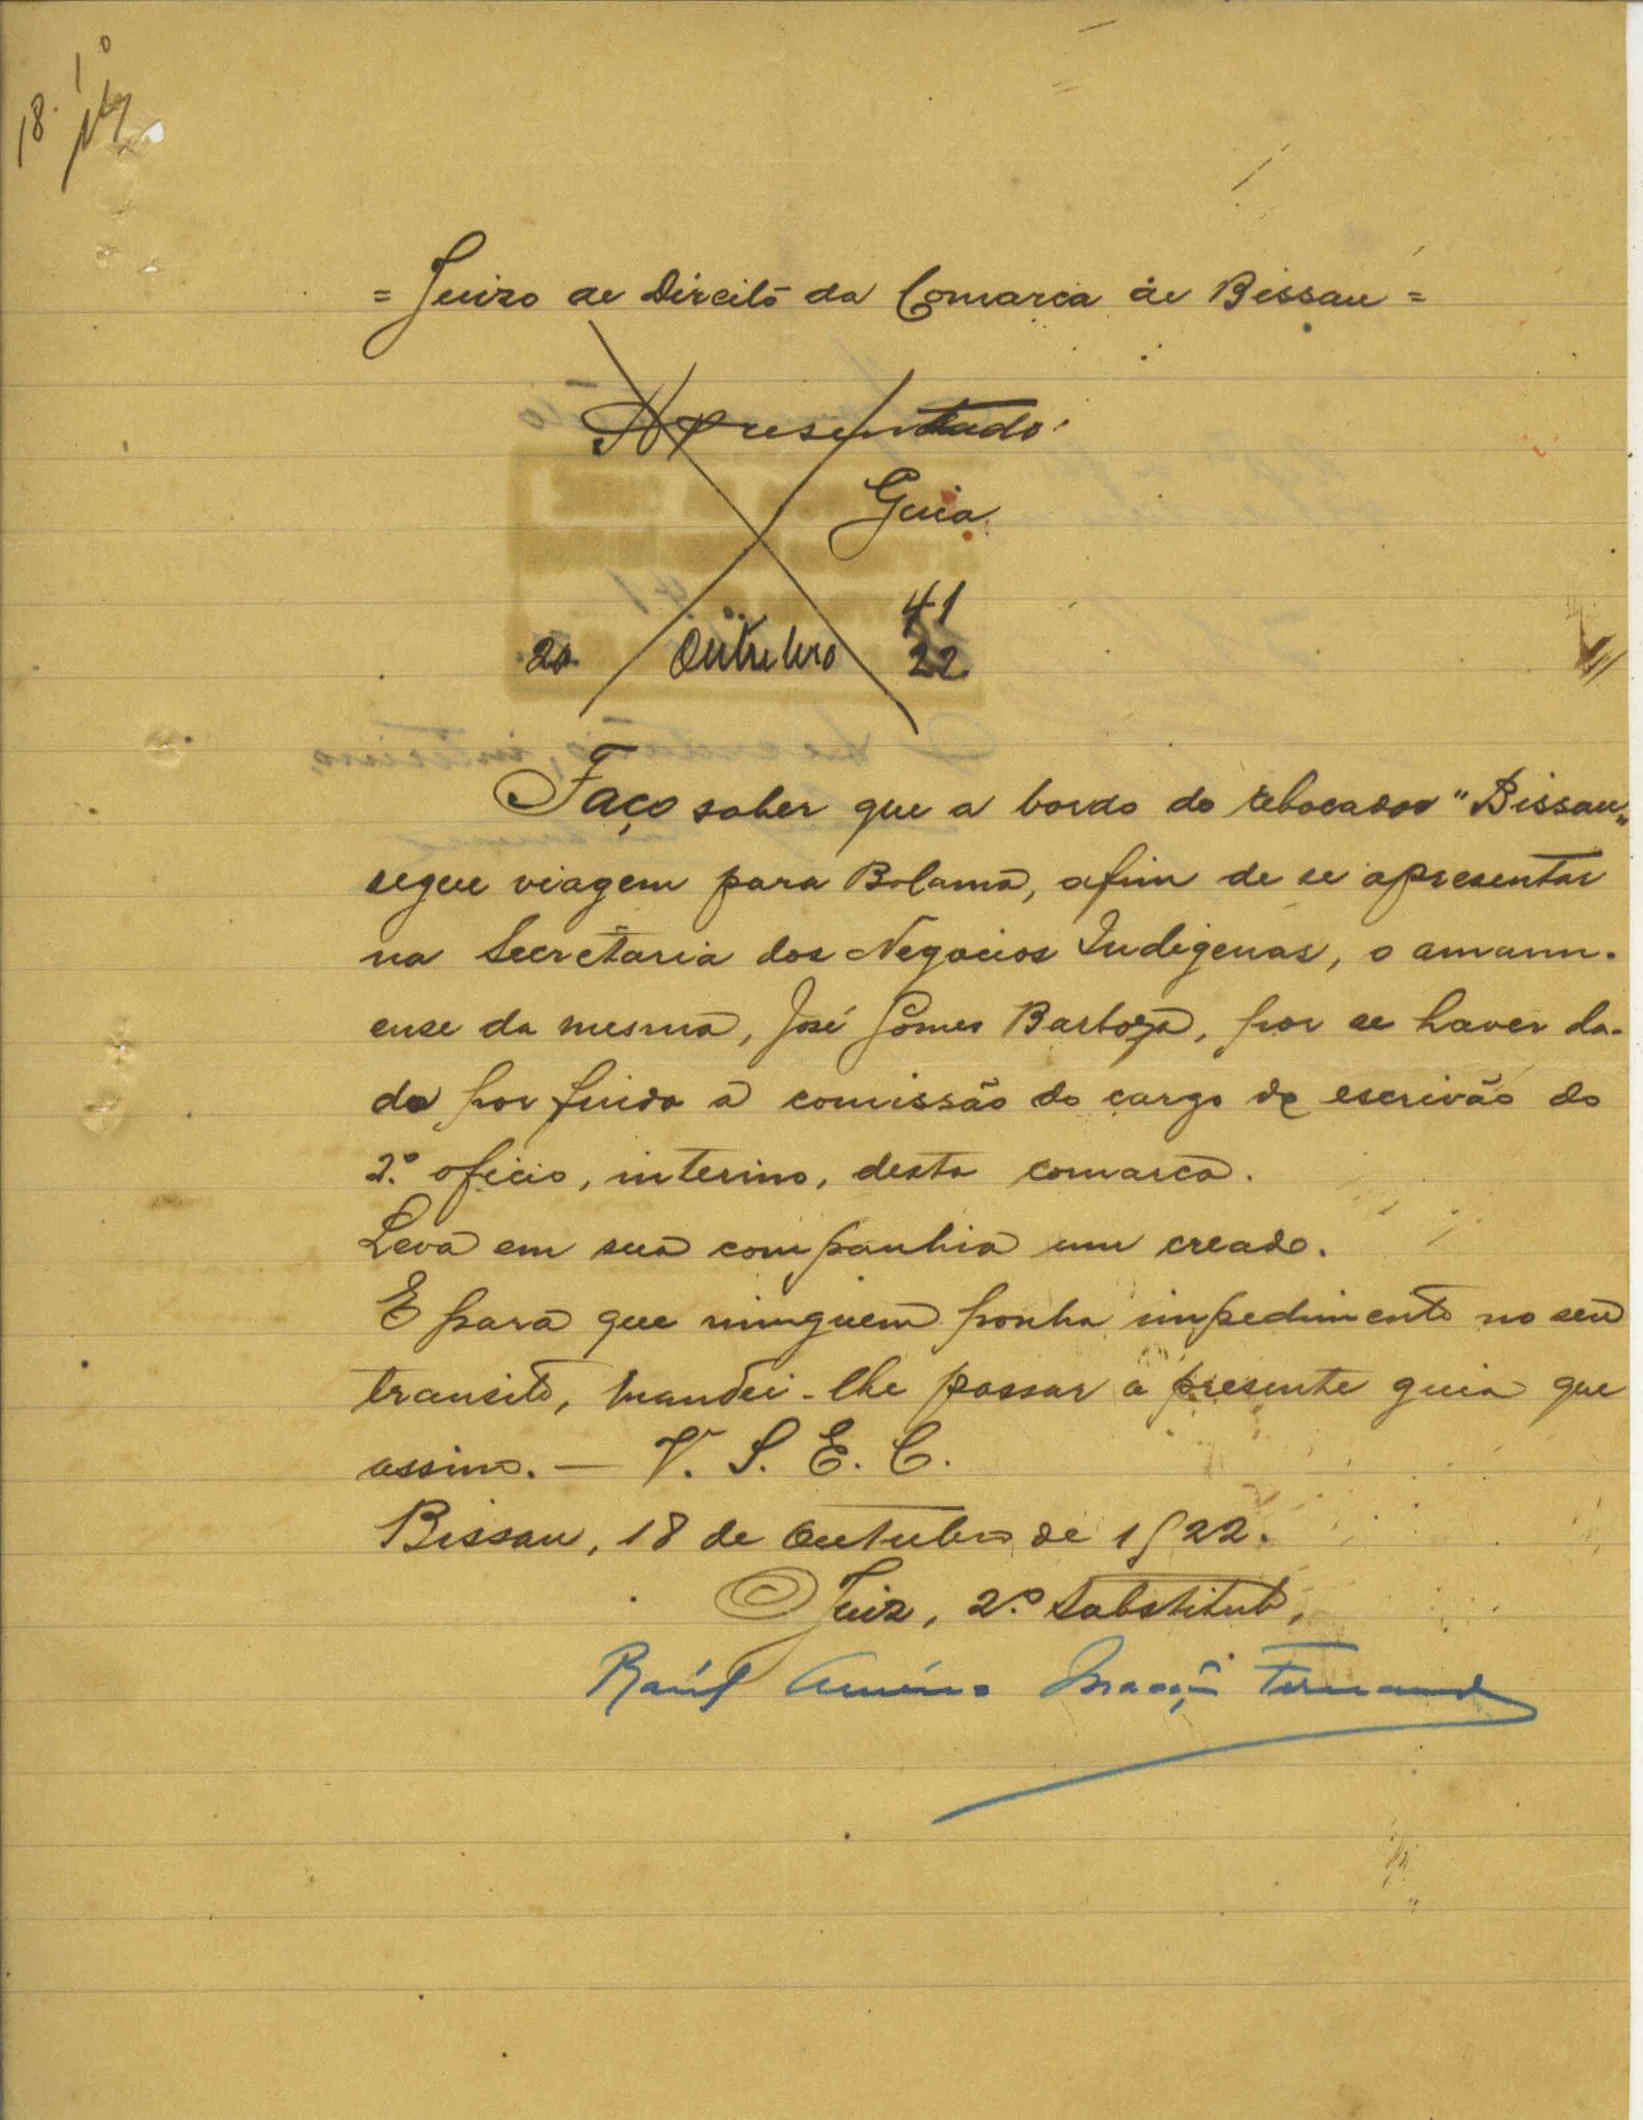 18.
= Juizo de Direito da Comarca de Bissau =
Apresentado
Guia
41
20 Outubro 22
Faço saber que a bordo do rebocador "Bissau"
segue viagem para Bolama, afim de se apresentar
na Secretaria dos Negocios Indigenas, o amanu-
ense da mesma, José Gomes Barboza, por se haver da-
do por finda a comissão do cargo de escrivão do
2.º oficio, interino, desta comarca.
Leva em sua companhia um creado.
E para que ninguem ponha impedimento no seu
transito, mandei-lhe passar a presente guia que
assino. — V. S. E. C.
Bissau, 18 de Outubro de 1922.
O Juiz, 2.º Substituto,
Raúl António Fernandes